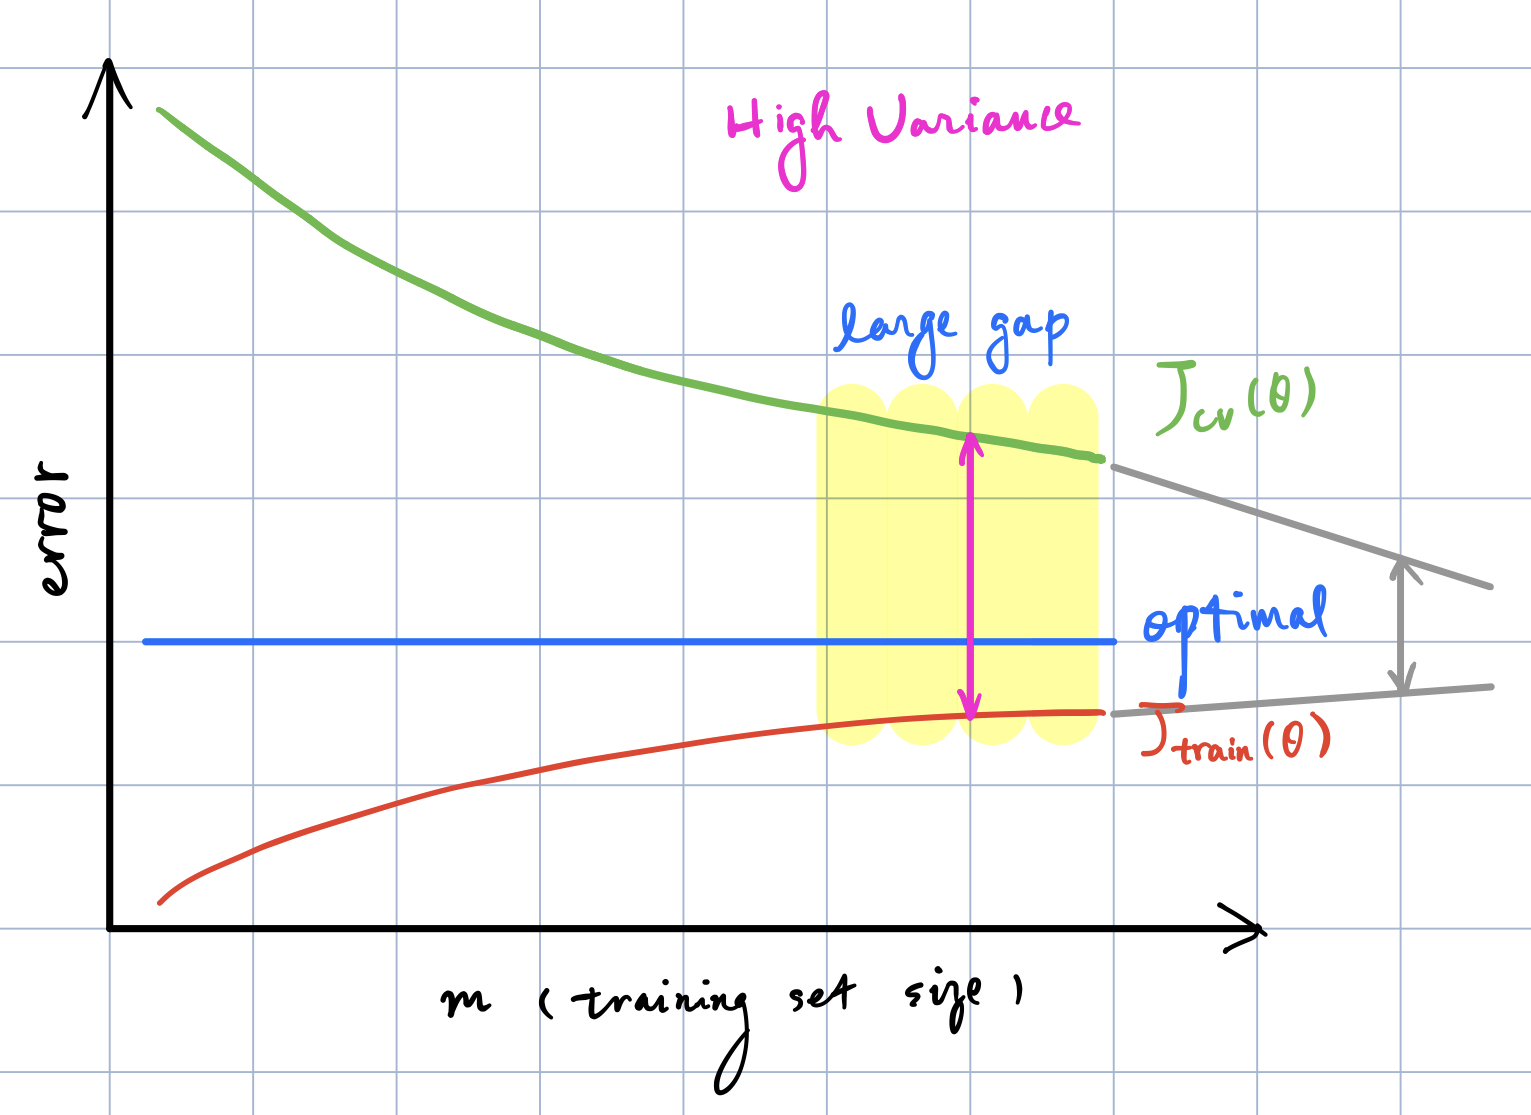 High Variance
large gap
J_cv(θ)
error
optimal
J_train(θ)
m (training set size)